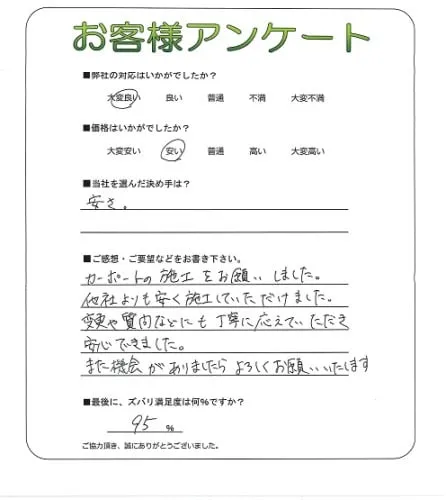 お客様アンケート
■弊社の対応はいかがでしたか?
大変良い 良い 普通 不満 大変不満
■価格はいかがでしたか?
大変安い 安い 普通 高い 大変高い
■当社を選んだ決め手は?
安さ。
■ご感想・ご要望などをお書き下さい。
カーポートの施工をお願いしました。
他社よりも安く施工していただけました。
変更や質問などにも丁寧に応えていただき
安心できました。
また機会がありましたらよろしくお願いいたします
■最後に、ズバリ満足度は何%ですか?
95 %
ご協力頂き、誠にありがとうございました。